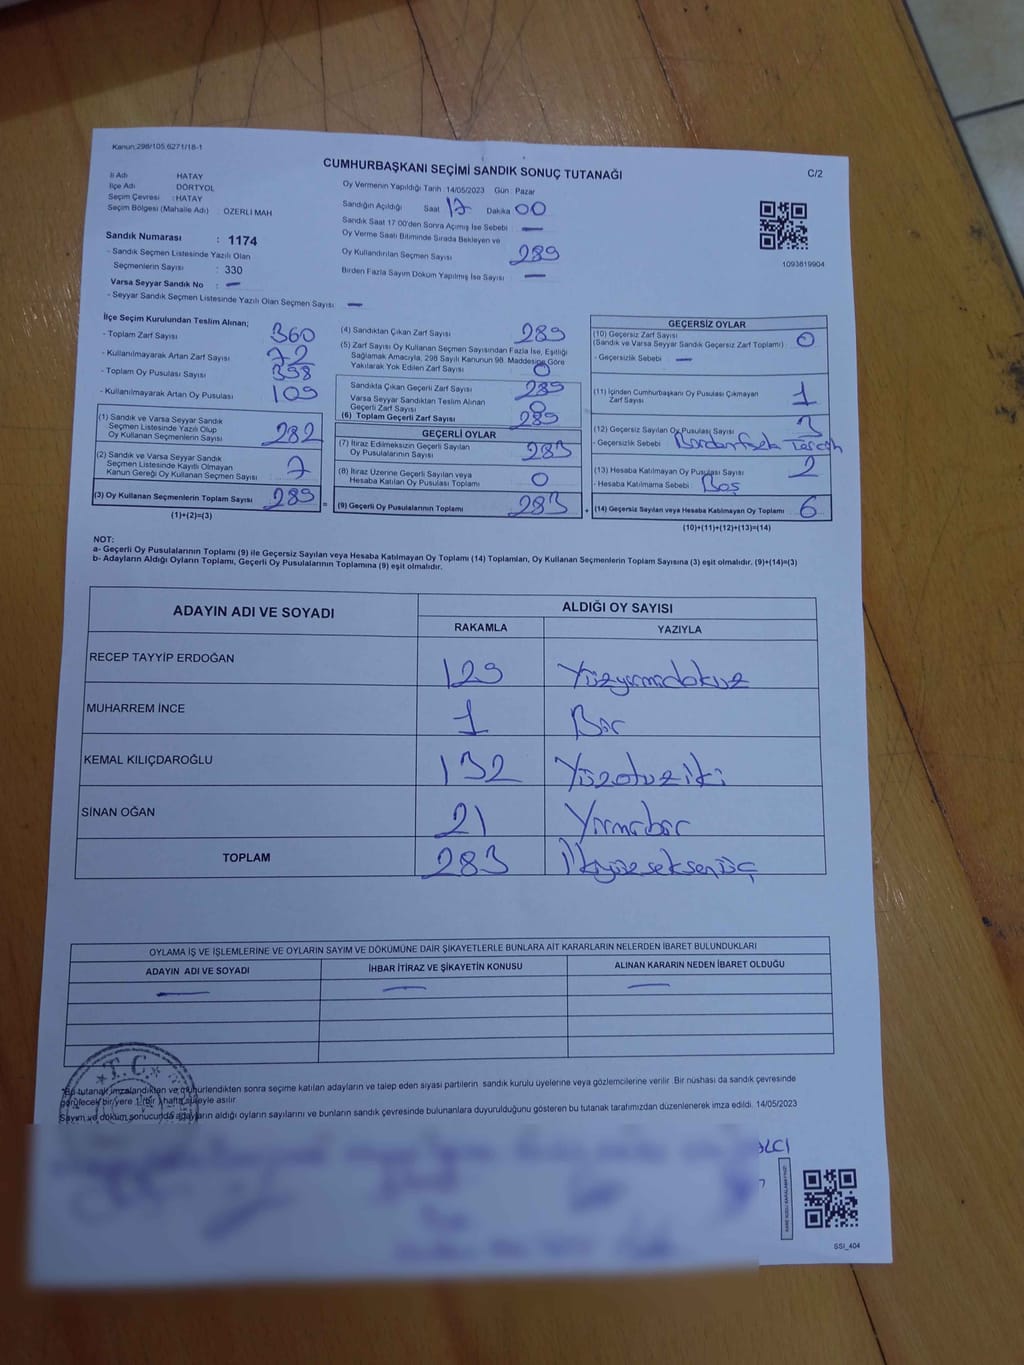 Kanun:298/105.6271/18-1
CUMHURBAŞKANI SEÇİMİ SANDIK SONUÇ TUTANAĞI
C/2
İl Adı HATAY
İlçe Adı DÖRTYOL
Seçim Çevresi : HATAY
Seçim Bölgesi (Mahalle Adı) : ÖZERLİ MAH
Sandık Numarası : 1174
- Sandık Seçmen Listesinde Yazılı Olan
Seçmenlerin Sayısı : 330
Varsa Seyyar Sandık No : —
- Seyyar Sandık Seçmen Listesinde Yazılı Olan Seçmen Sayısı : —
Oy Vermenin Yapıldığı Tarih :14/05/2023 Gün : Pazar
Sandığın Açıldığı Saat 17 Dakika 00
Sandık Saat 17:00'den Sonra Açımış İse Sebebi : —
Oy Verme Saati Bitiminde Sırada Bekleyen ve
Oy Kullandırılan Seçmen Sayısı 289
Birden Fazla Sayım Döküm Yapılmış İse Sayısı : —
1093819904
İlçe Seçim Kurulundan Teslim Alınan;
- Toplam Zarf Sayısı 360
- Kullanılmayarak Artan Zarf Sayısı 72
- Toplam Oy Pusulası Sayısı 398
- Kullanılmayarak Artan Oy Pusulası 109
(1) Sandık ve Varsa Seyyar Sandık
Seçmen Listesinde Yazılı Olup
Oy Kullanan Seçmenlerin Sayısı 282
(2) Sandık ve Varsa Seyyar Sandık
Seçmen Listesinde Kayıtlı Olmayan
Kanun Gereği Oy Kullanan Seçmen Sayısı 7
(3) Oy Kullanan Seçmenlerin Toplam Sayısı 289
(1)+(2)=(3)
(4) Sandıktan Çıkan Zarf Sayısı 289
(5) Zarf Sayısı Oy Kullanan Seçmen Sayısından Fazla İse, Eşitliği
Sağlamak Amacıyla, 298 Sayılı Kanunun 98. Maddesine Göre
Yakılarak Yok Edilen Zarf Sayısı 0
Sandıkta Çıkan Geçerli Zarf Sayısı 289
Varsa Seyyar Sandıktan Teslim Alınan
Geçerli Zarf Sayısı 0
(6) Toplam Geçerli Zarf Sayısı 289
GEÇERLİ OYLAR
(7) İtiraz Edilmeksizin Geçerli Sayılan
Oy Pusulalarının Sayısı 283
(8) İtiraz Üzerine Geçerli Sayılan veya
Hesaba Katılan Oy Pusulası Toplamı 0
(9) Geçerli Oy Pusulalarının Toplamı 283
GEÇERSİZ OYLAR
(10) Geçersiz Zarf Sayısı
(Sandık ve Varsa Seyyar Sandık Geçersiz Zarf Toplamı) 0
- Geçersizlik Sebebi : —
(11) İçinden Cumhurbaşkanı Oy Pusulası Çıkmayan
Zarf Sayısı 1
(12) Geçersiz Sayılan Oy Pusulası Sayısı 3
- Geçersizlik Sebebi : Birden fazla Tercih
(13) Hesaba Katılmayan Oy Pusulası Sayısı 2
- Hesaba Katılmama Sebebi : Boş
(14) Geçersiz Sayılan veya Hesaba Katılmayan Oy Toplamı 6
(10)+(11)+(12)+(13)=(14)
NOT:
a- Geçerli Oy Pusulalarının Toplamı (9) ile Geçersiz Sayılan veya Hesaba Katılmayan Oy Toplamı (14) Toplamları, Oy Kullanan Seçmenlerin Toplam Sayısına (3) eşit olmalıdır. (9)+(14)=(3)
b- Adayların Aldığı Oyların Toplamı, Geçerli Oy Pusulalarının Toplamına (9) eşit olmalıdır.
ADAYIN ADI VE SOYADI
ALDIĞI OY SAYISI
RAKAMLA YAZIYLA
RECEP TAYYİP ERDOĞAN 129 Yüzyirmidokuz
MUHARREM İNCE 1 Bir
KEMAL KILIÇDAROĞLU 132 Yüzotuziki
SİNAN OĞAN 21 Yirmibir
TOPLAM 283 İkiyüzseksenüç
OYLAMA İŞ VE İŞLEMLERİNE VE OYLARIN SAYIM VE DÖKÜMÜNE DAİR ŞİKAYETLERLE BUNLARA AİT KARARLARIN NELERDEN İBARET BULUNDUKLARI
ADAYIN ADI VE SOYADI İHBAR İTİRAZ VE ŞİKAYETİN KONUSU ALINAN KARARIN NEDEN İBARET OLDUĞU
— — —
T.C.
*Bu tutanak imzalandıktan ve mühürlendikten sonra seçime katılan adayların ve talep eden siyasi partilerin sandık kurulu üyelerine veya gözlemcilerine verilir. Bir nüshası da sandık çevresinde
görülecek bir yere 1 (bir) hafta süreyle asılır.
Sayım ve döküm sonucunda adayların aldığı oyların sayılarını ve bunların sandık çevresinde bulunanlara duyurulduğunu gösteren bu tutanak tarafımızdan düzenlenerek imza edildi. 14/05/2023
SSI_404